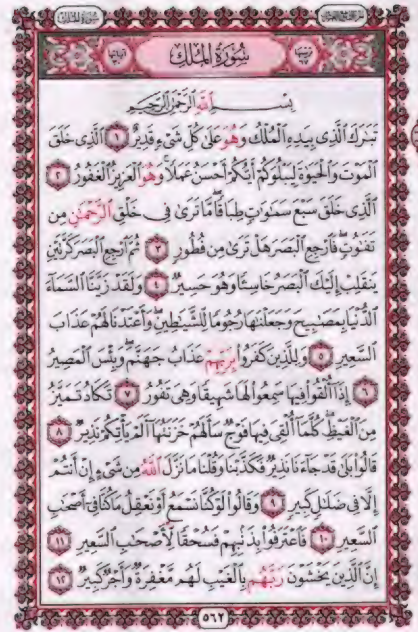 سُورَةُ المُلْكِ
سُورَةُ المُلْكِ
بِسْمِ ٱللَّهِ ٱلرَّحْمَٰنِ ٱلرَّحِيمِ
تَبَٰرَكَ ٱلَّذِى بِيَدِهِ ٱلْمُلْكُ وَهُوَ عَلَىٰ كُلِّ شَىْءٍ قَدِيرٌ ١ ٱلَّذِى خَلَقَ
ٱلْمَوْتَ وَٱلْحَيَوٰةَ لِيَبْلُوَكُمْ أَيُّكُمْ أَحْسَنُ عَمَلًا وَهُوَ ٱلْعَزِيزُ ٱلْغَفُورُ ٢
ٱلَّذِى خَلَقَ سَبْعَ سَمَٰوَٰتٍ طِبَاقًا مَّا تَرَىٰ فِى خَلْقِ ٱلرَّحْمَٰنِ مِن
تَفَٰوُتٍ فَٱرْجِعِ ٱلْبَصَرَ هَلْ تَرَىٰ مِن فُطُورٍ ٣ ثُمَّ ٱرْجِعِ ٱلْبَصَرَ كَرَّتَيْنِ
يَنقَلِبْ إِلَيْكَ ٱلْبَصَرُ خَاسِئًا وَهُوَ حَسِيرٌ ٤ وَلَقَدْ زَيَّنَّا ٱلسَّمَآءَ
ٱلدُّنْيَا بِمَصَٰبِيحَ وَجَعَلْنَٰهَا رُجُومًا لِّلشَّيَٰطِينِ وَأَعْتَدْنَا لَهُمْ عَذَابَ
ٱلسَّعِيرِ ٥ وَلِلَّذِينَ كَفَرُوا۟ بِرَبِّهِمْ عَذَابُ جَهَنَّمَ وَبِئْسَ ٱلْمَصِيرُ
٦ إِذَآ أُلْقُوا۟ فِيهَا سَمِعُوا۟ لَهَا شَهِيقًا وَهِىَ تَفُورُ ٧ تَكَادُ تَمَيَّزُ
مِنَ ٱلْغَيْظِ كُلَّمَآ أُلْقِىَ فِيهَا فَوْجٌ سَأَلَهُمْ خَزَنَتُهَآ أَلَمْ يَأْتِكُمْ نَذِيرٌ ٨
قَالُوا۟ بَلَىٰ قَدْ جَآءَنَا نَذِيرٌ فَكَذَّبْنَا وَقُلْنَا مَا نَزَّلَ ٱللَّهُ مِن شَىْءٍ إِنْ أَنتُمْ
إِلَّا فِى ضَلَٰلٍ كَبِيرٍ ٩ وَقَالُوا۟ لَوْ كُنَّا نَسْمَعُ أَوْ نَعْقِلُ مَا كُنَّا فِىٓ أَصْحَٰبِ
ٱلسَّعِيرِ ١٠ فَٱعْتَرَفُوا۟ بِذَنۢبِهِمْ فَسُحْقًا لِّأَصْحَٰبِ ٱلسَّعِيرِ ١١
إِنَّ ٱلَّذِينَ يَخْشَوْنَ رَبَّهُم بِٱلْغَيْبِ لَهُم مَّغْفِرَةٌ وَأَجْرٌ كَبِيرٌ ١٢
٥٦٢